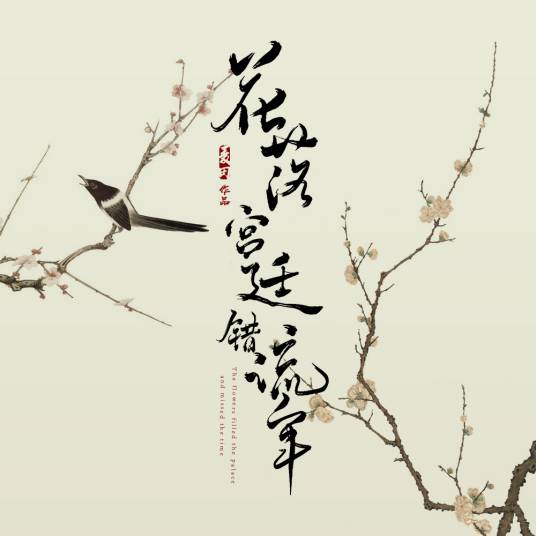 花落
宫廷
错流年
作品
The flowers filled the palace
and missed the time